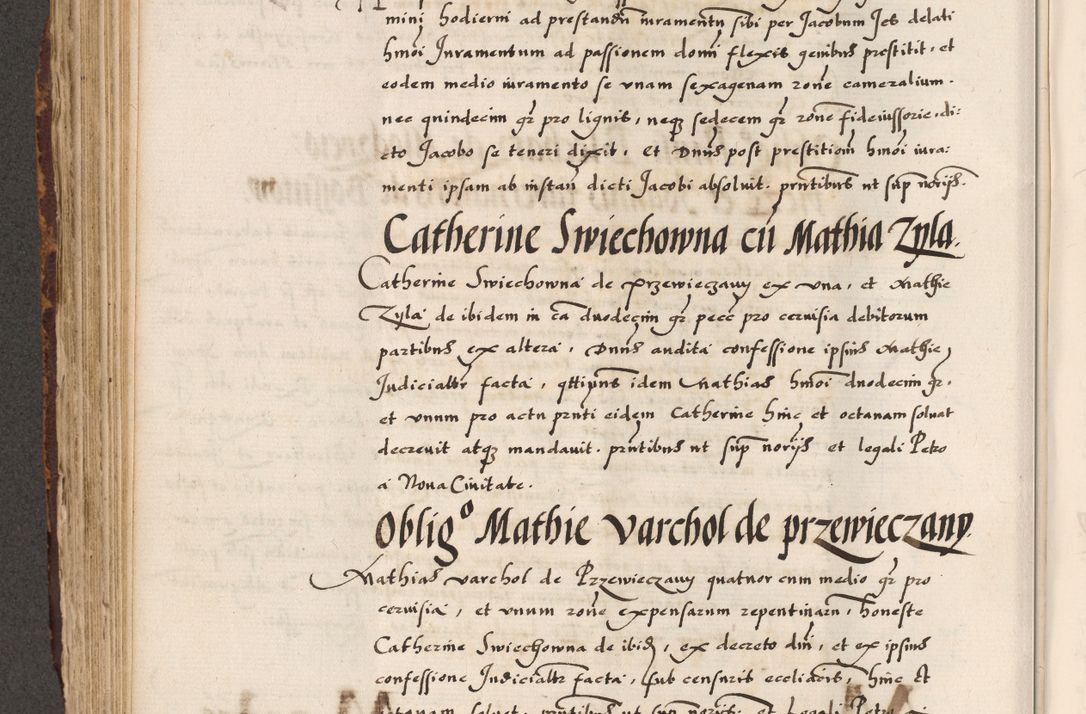 mini hodierni ad prestandū iuramentū sibi per Jacobum Jes delati
hmōi Juramentum ad passionem domī flexis genibus prestitit, et
eodem medio iuramento se vnam sexagenam rōne cameralium.
nec quindecim gr̄ pro lignis, neqꝫ sedecem gr̄ rōne fideiussorie, di:
cto Jacobo se teneri dixit, Et Dnūs post prestitiom̄ hmōi iura:
menti ipsam ab instan̄ dicti Jacobi absoluit. prn̄tibus ut sup̄ norijs̄.
Catherine Swiechowna cū Mathia Zyla.
Catherine Swiechowna de Przewieczany ex vna, et Mathie
Zyla de ibidem in cā duodecim gr̄ pecc̄ pro ceruisia debitorum
partibus ex altera, Dnūs audita confessione ipsius Mathie
Judicialtr̄ facta, qttipn̄s idem Mathias hmōi duodecim gr̄.
et vnum pro actu prn̄ti eidem Catherine hinc et octauam soluat
decreuit atqꝫ mandauit. prn̄tibus ut sup̄ norijs̄ et legali Petro
a Noua Ciuitate.
Oblig⁰ Mathie Varchol de przewieczany.
Mathias varchol de Przewieczany quatuor cum medio gr̄ pro
ceruisia, et vnum rōne expensarum repentinarū, honeste
Catherine Swiechowna de ibid̄, ex decreto dn̄i, et ex ipsius
confessione Judicialtr̄ facta, sub censuris eccliācis̄, hinc et
octauam soluet, prn̄tibus ut sup̄ norijs̄ et legali Petro a